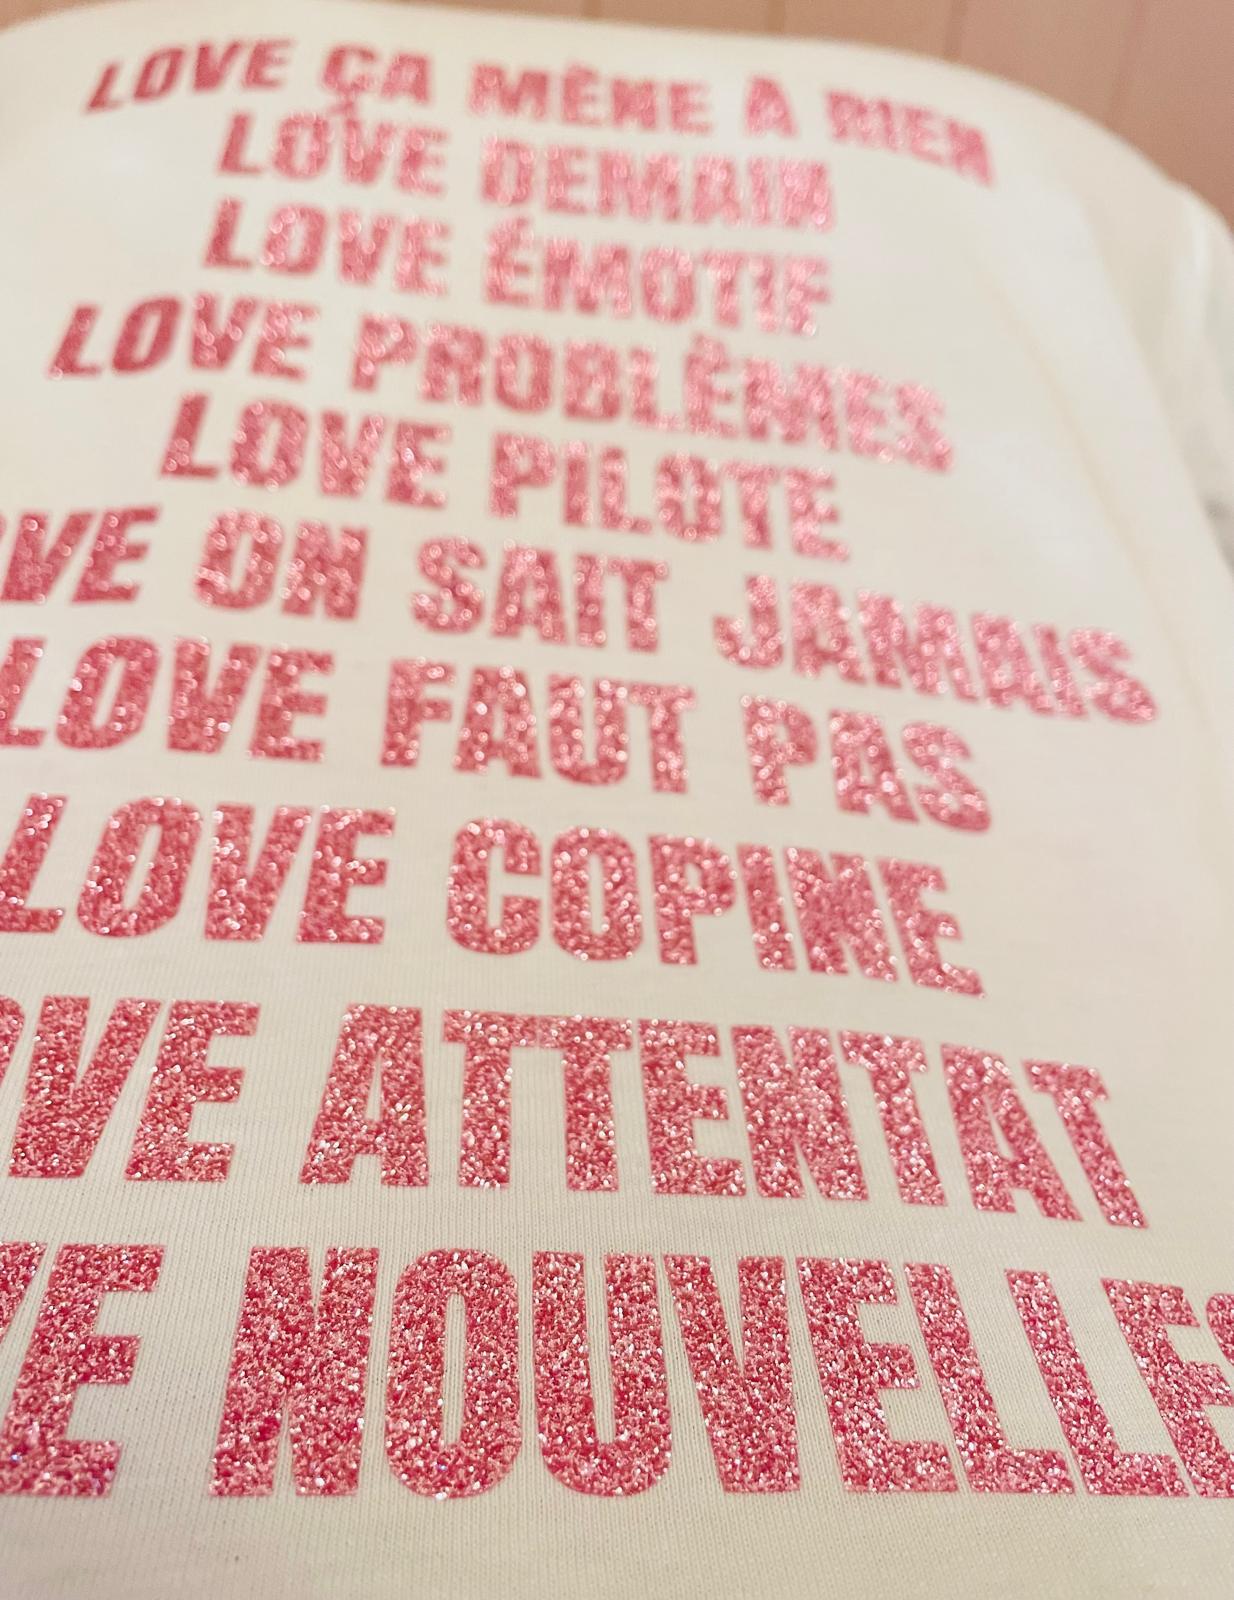 LOVE ÇA MÈNE À RIEN
LOVE DEMAIN
LOVE ÉMOTIF
LOVE PROBLÈMES
LOVE PILOTE
OVE ON SAIT JAMAIS
LOVE FAUT PAS
LOVE COPINE
OVE ATTENTAT
VE NOUVELLES